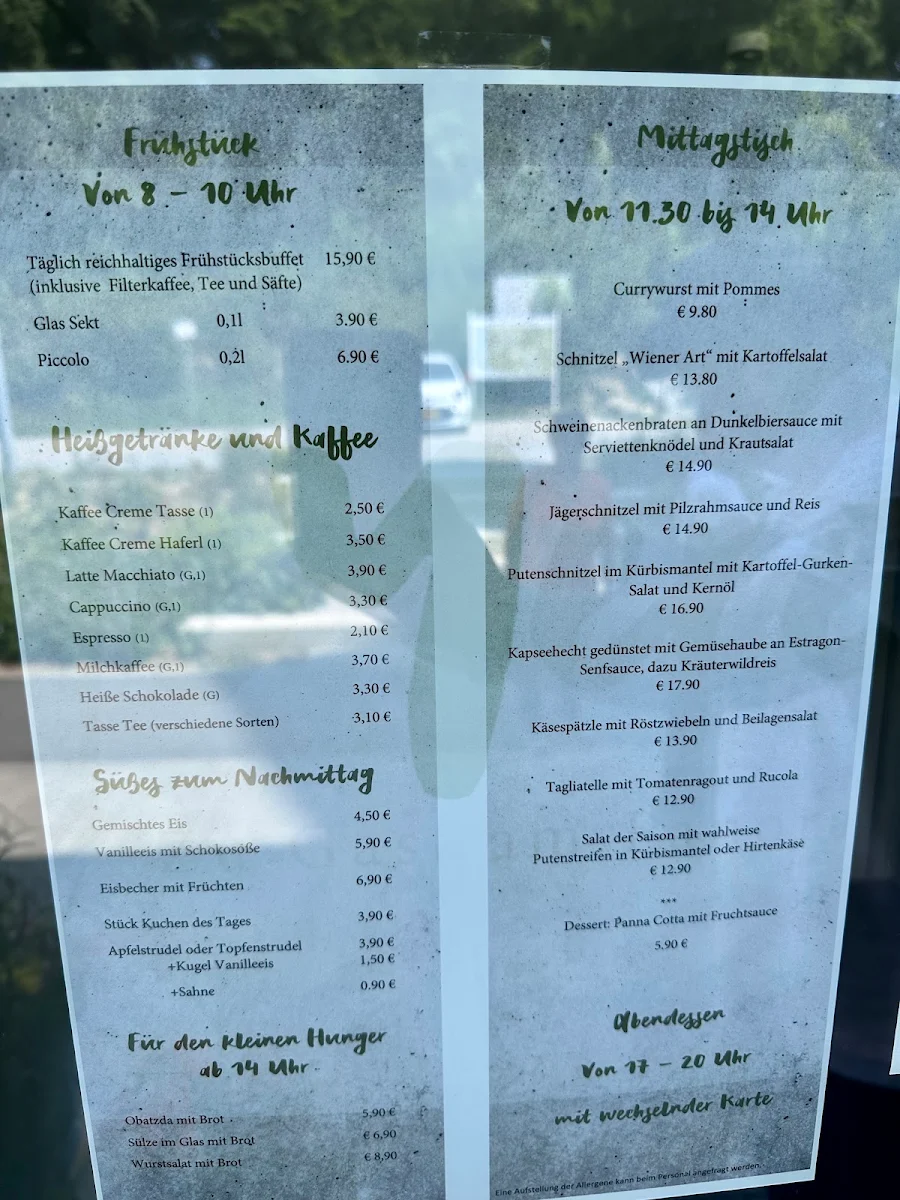 Frühstück
Von 8 – 10 Uhr
Täglich reichhaltiges Frühstücksbuffet 15,90 €
(inklusive Filterkaffee, Tee und Säfte)
Glas Sekt 0,1l 3.90 €
Piccolo 0,2l 6.90 €
Heißgetränke und Kaffee
Kaffee Creme Tasse (1) 2,50 €
Kaffee Creme Haferl (1) 3,50 €
Latte Macchiato (G,1) 3,90 €
Cappuccino (G,1) 3,30 €
Espresso (1) 2,10 €
Milchkaffee (G,1) 3,70 €
Heiße Schokolade (G) 3,30 €
Tasse Tee (verschiedene Sorten) 3,10 €
Süßes zum Nachmittag
Gemischtes Eis 4,50 €
Vanilleeis mit Schokosoße 5,90 €
Eisbecher mit Früchten 6,90 €
Stück Kuchen des Tages 3,90 €
Apfelstrudel oder Topfenstrudel 3,90 €
+Kugel Vanilleeis 1,50 €
+Sahne 0.90 €
Für den kleinen Hunger
ab 14 Uhr
Obatzda mit Brot 5,90 €
Sülze im Glas mit Brot € 6,90
Wurstsalat mit Brot € 8,90
Mittagstisch
Von 11.30 bis 14 Uhr
Currywurst mit Pommes
€ 9.80
Schnitzel „Wiener Art“ mit Kartoffelsalat
€ 13.80
Schweinenackenbraten an Dunkelbiersauce mit
Serviettenknödel und Krautsalat
€ 14.90
Jägerschnitzel mit Pilzrahmsauce und Reis
€ 14.90
Putenschnitzel im Kürbismantel mit Kartoffel-Gurken-
Salat und Kernöl
€ 16.90
Kapseehecht gedünstet mit Gemüsehaube an Estragon-
Senfsauce, dazu Kräuterwildreis
€ 17.90
Käsespätzle mit Röstzwiebeln und Beilagensalat
€ 13.90
Tagliatelle mit Tomatenragout und Rucola
€ 12.90
Salat der Saison mit wahlweise
Putenstreifen in Kürbismantel oder Hirtenkäse
€ 12.90
***
Dessert: Panna Cotta mit Fruchtsauce
5.90 €
Abendessen
Von 17 – 20 Uhr
mit wechselnder Karte
Eine Aufstellung der Allergene kann beim Personal angefragt werden.